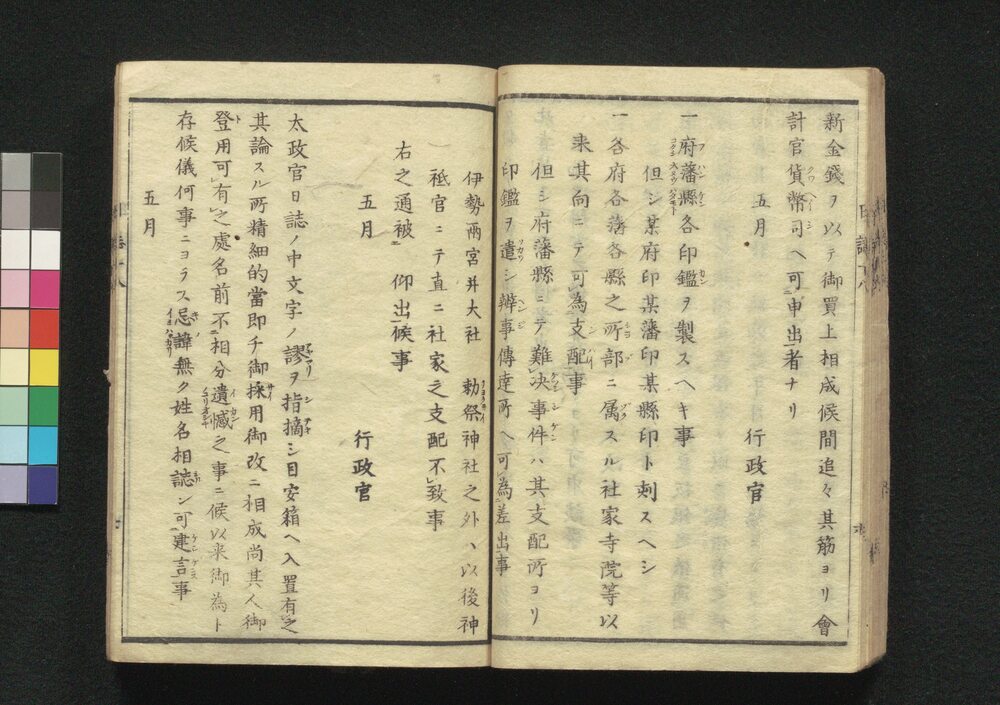 新金錢ヲ以テ御買上相成候間追々其筋ヨリ會
計官貨幣司ヘ可申出者ナリ
五月
行政官
一府藩縣各印鑑ヲ製スヘキ事
但シ某府印某藩印某縣印ト刻スヘシ
一各府各藩各縣之所部ニ属スル社家寺院等以
来其向ニテ可為支配事
但シ府藩縣ニテ難决事件ハ其支配所ヨリ
印鑑ヲ遣シ辨事傳達所ヘ可為差出事
伊勢兩宮并大社 勅祭神社之外ハ以後神
祗官ニテ直ニ社家之支配不致事
右之通被 仰出候事
五月
行政官
太政官日誌ノ中文字ノ謬ヲ指摘シ目安箱ヘ入置有之
其論スル所精細的當即チ御採用御改ニ相成尚其人御
登用可有之處名前不相分遺憾之事ニ候以来御為ト
存候儀何事ニヨラス忌諱無ク姓名相誌シ可建言事
五月